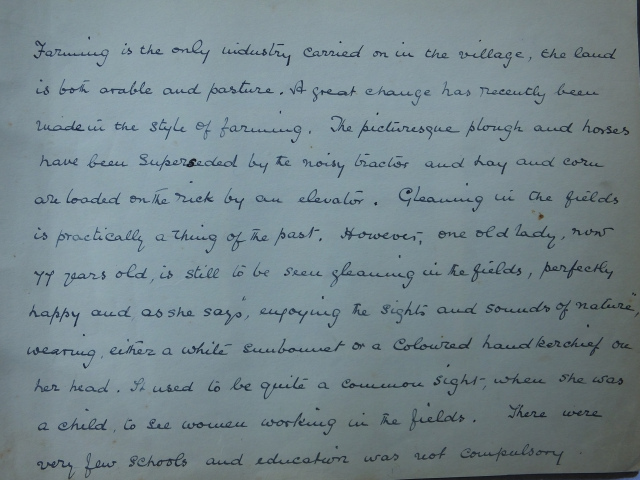 Farming is the only industry carried on in the village, the land
is both arable and pasture. A great change has recently been
made in the style of farming. The picturesque plough and horses
have been superseded by the noisy tractor and hay and corn
are loaded on the rick by an elevator. Gleaning in the fields
is practically a thing of the past. However, one old lady, now
77 years old, is still to be seen gleaning in the fields, perfectly
happy and as she says, "enjoying the sights and sounds of nature",
wearing, either a white sunbonnet or a coloured handkerchief on
her head. It used to be quite a common sight, when she was
a child, to see women working in the fields. There were
very few schools and education was not compulsory.